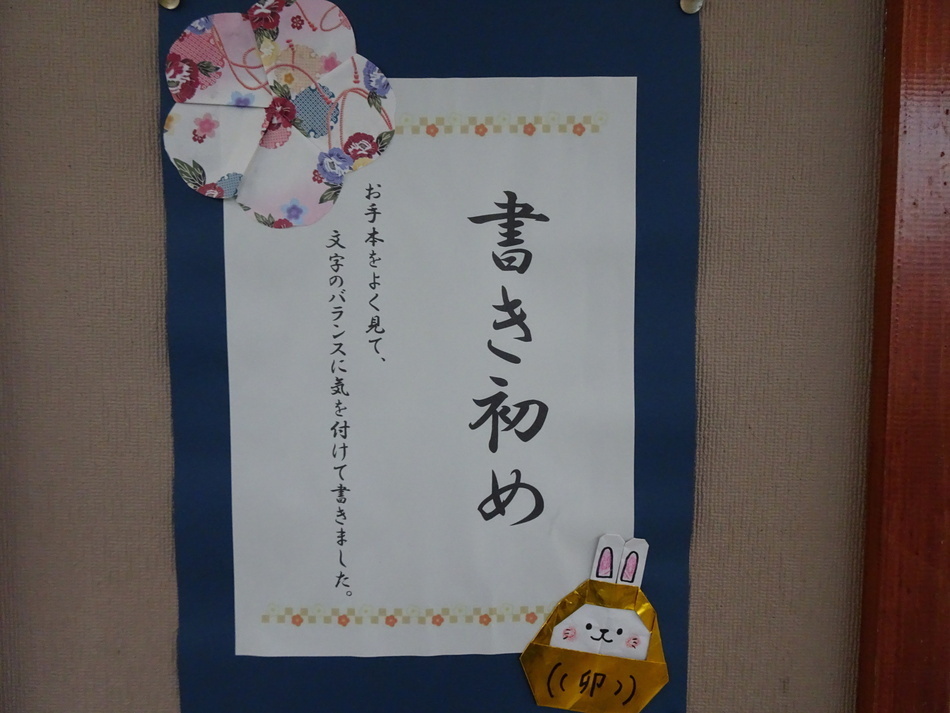 書き初め
お手本をよく見て、
文字のバランスに気を付けて書きました。
((卯))